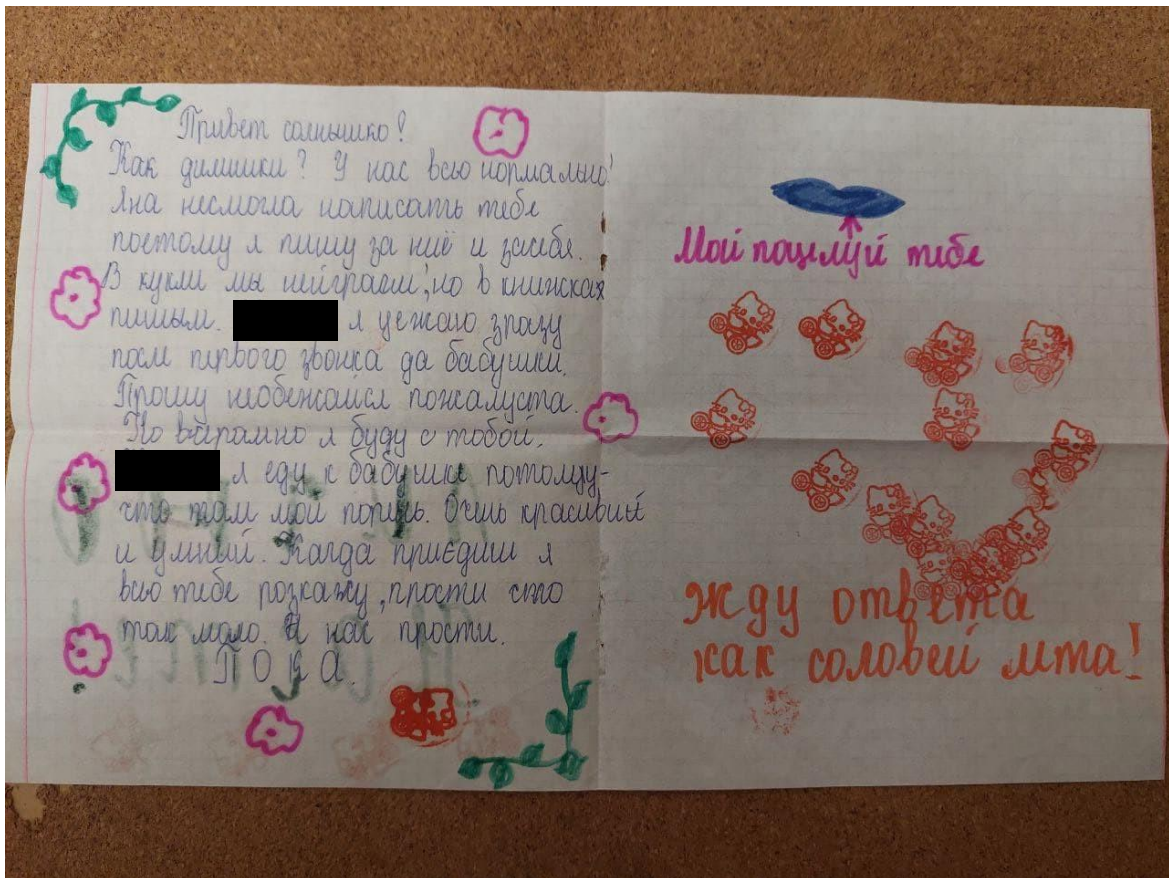 Привет солнышко!
Как дилишки? У нас всьо нормально!
Яна несмогла написать тебе
поетому я пишу за нïе и засебя.
В кукли мы неиграем, но в книжках
пишым. я уежаю зразу
после первого звонка да бабушки.
Прошу необежайся пожалуста.
Но всёрамно я буду с тобой.
я еду к бабушке потомду-
что там мой порень. Очень красивий
и умний. Кагда приєдиш я
всьо тебе розкажу, прости што
так мало. И нас прости.
ПОКА.
Мой поцелуй тибе
Жду ответа
как соловей лета!